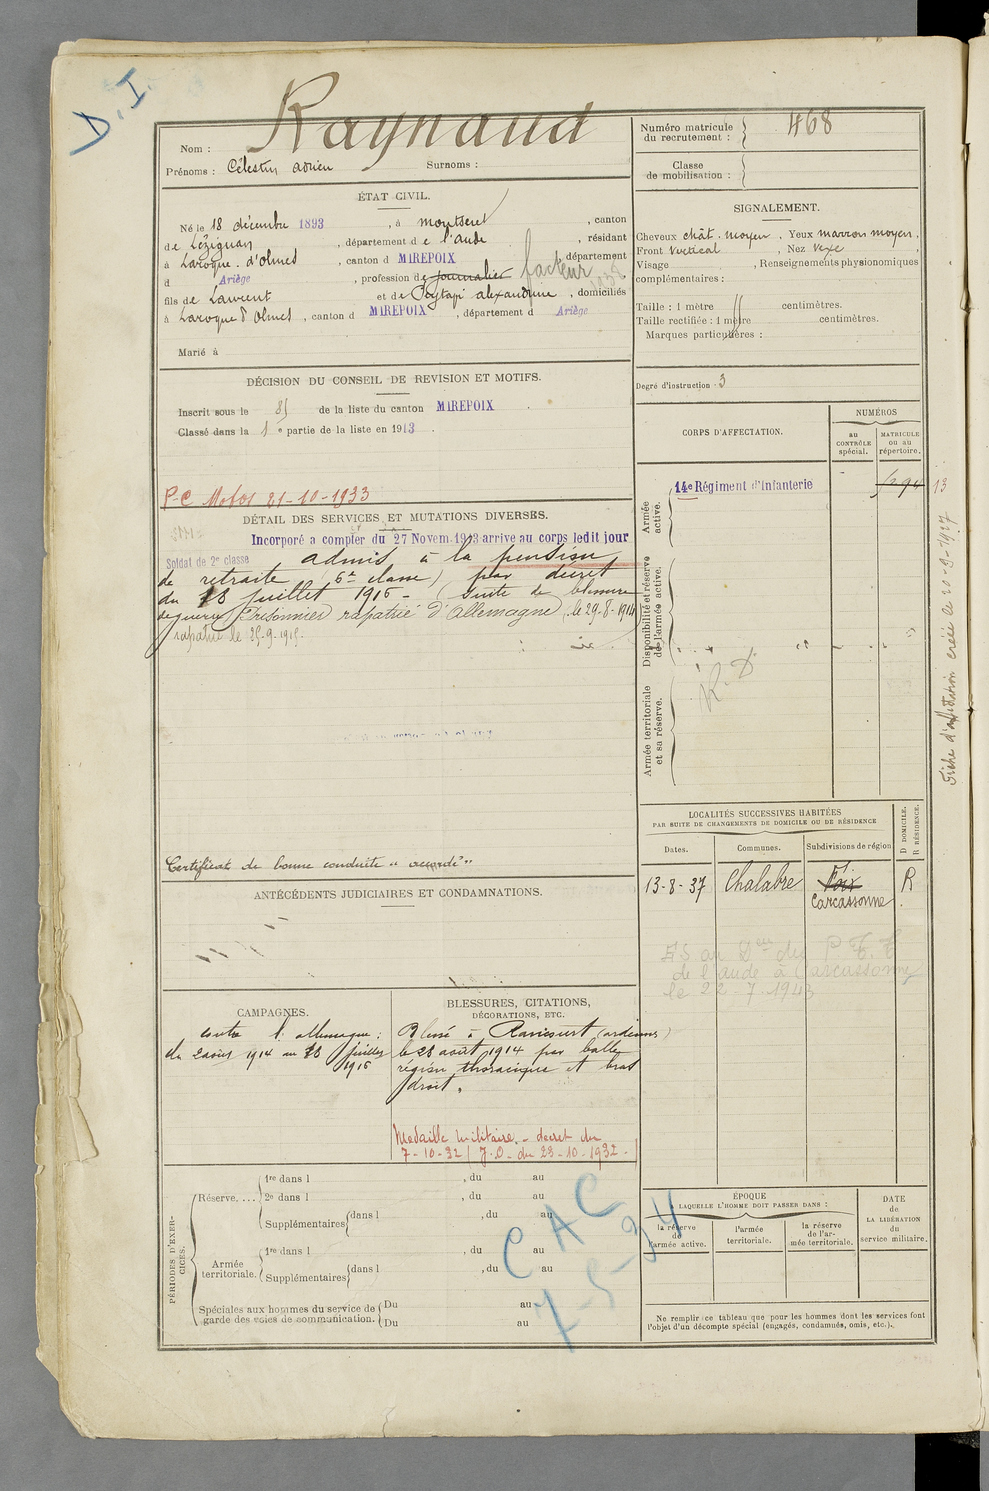 D. I.
Raynaud
Nom :
Prénoms : Célestin Adrien Surnoms :
ÉTAT CIVIL.
Né le 18 décembre 1893 , à Montseret , canton
de Lézignan , département de l'Aude , résidant
à Laroque. d'Olmes , canton d MIREPOIX , département
d Ariège , profession de journalier facteur
fils de Laurent et de Peytapi alexandrine , domiciliés
à Laroque d'Olmes , canton d MIREPOIX , département d Ariège
Marié à
DÉCISION DU CONSEIL DE REVISION ET MOTIFS.
Inscrit sous le 85 de la liste du canton MIREPOIX
Classé dans la 1e partie de la liste en 1913 .
P-C Mobos 21-10-1933
DÉTAIL DES SERVICES ET MUTATIONS DIVERSES.
Incorporé a compter du 27 Novem. 1913 arrive au corps ledit jour
Soldat de 2e classe admis à la pension
de retraite (6e classe) par décret
du 13 juillet 1916 - (suite de blessure
de guerre) Prisonnier rapatrié d'Allemagne, le 29-8-1914
rapatrié le 25-9-1915.
Certificat de bonne conduite "accordé"
ANTÉCÉDENTS JUDICIAIRES ET CONDAMNATIONS.
CAMPAGNES.
contre l'allemagne :
du 2 aout 1914 au 13 juillet
1916
BLESSURES, CITATIONS,
DÉCORATIONS, ETC.
Blessé à Raucourt (ardennes)
le 28 août 1914 par balle
région thoracique et bras
droit.
Médaille militaire. - décret du
7-10-32 (J.O. du 23-10-1932.
PÉRIODES D'EXERCICES.
Réserve, ...
1re dans l , du au
2e dans l , du au
Supplémentaires dans l , du au
Armée territoriale.
1re dans l , du au
Supplémentaires dans l , du au
Spéciales aux hommes du service de
garde des voies de communication.
Du au
Du au
C A C
7-5-34
Numéro matricule
du recrutement : 468
Classe
de mobilisation :
SIGNALEMENT.
Cheveux chât. moyen . Yeux marron moyen.
Front vertical , Nez vexe
Visage , Renseignements physionomiques
complémentaires :
Taille : 1 mètre centimètres.
Taille rectifiée : 1 mètre centimètres.
Marques particulières :
Degré d'instruction 3
CORPS D'AFFECTATION.
NUMÉROS
au
CONTRÔLE
spécial.
MATRICULE
ou au
répertoire.
Armée
active.
14e Régiment d'Infanterie 13
Disponibilité et réserve
de l'armée active.
R. D.
Armée territoriale
et sa réserve.
Fiche d'affectation créée le 20-9-1927
LOCALITÉS SUCCESSIVES HABITÉES
PAR SUITE DE CHANGEMENTS DE DOMICILE OU DE RÉSIDENCE
Dates. Communes. Subdivisions de région
D DOMICILE.
R RÉSIDENCE.
13-8-37 Chalabre Foix R
Carcassonne
AS au Deur des P.T.T
de l'Aude à Carcassonne
le 22-7-1943
ÉPOQUE
A LAQUELLE L'HOMME DOIT PASSER DANS :
la réserve
de
l'armée active.
l'armée
territoriale.
la réserve
de l'ar-
mée territoriale.
DATE
de
LA LIBÉRATION
du
service militaire.
Ne remplir ce tableau que pour les hommes dont les services font
l'objet d'un décompte spécial (engagés, condamnés, omis, etc.).